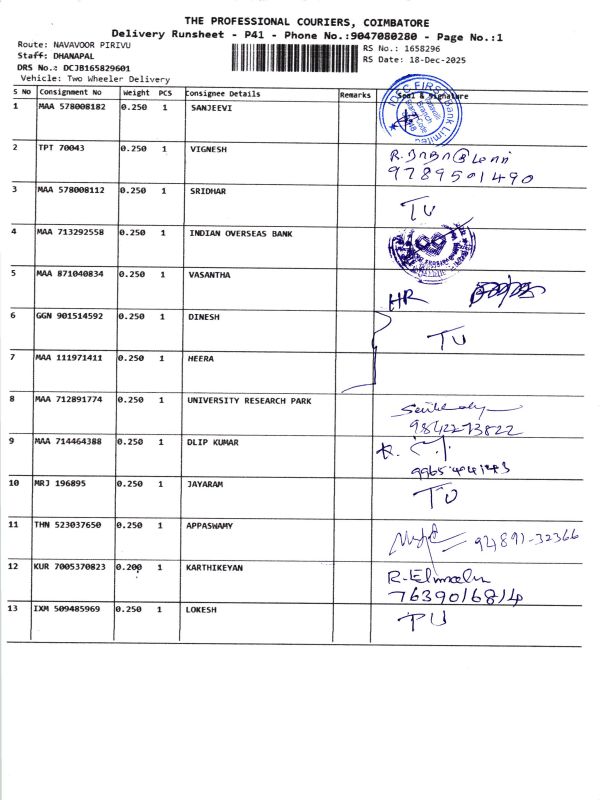 THE PROFESSIONAL COURIERS, COIMBATORE
Delivery Runsheet - P41 - Phone No.:9047080280 - Page No.:1
Route: NAVAVOOR PIRIVU
RS No.: 1658296
Staff: DHANAPAL
RS Date: 18-Dec-2025
DRS No.: DCJB165829601
Vehicle: Two Wheeler Delivery
S No Consignment No Weight PCS Consignee Details Remarks Seal & Signature
1 MAA 578008182 0.250 1 SANJEEVI
IDFC FIRST Bank Limited
Branch
2 TPT 70043 0.250 1 VIGNESH
9789501490
3 MAA 578008112 0.250 1 SRIDHAR
TU
4 MAA 713292558 0.250 1 INDIAN OVERSEAS BANK
5 MAA 871040834 0.250 1 VASANTHA
HR
6 GGN 901514592 0.250 1 DINESH
TU
7 MAA 111971411 0.250 1 HEERA
8 MAA 712891774 0.250 1 UNIVERSITY RESEARCH PARK
9842273822
9 MAA 714464388 0.250 1 DLIP KUMAR
10 MRJ 196895 0.250 1 JAYARAM
TU
11 THN 523037650 0.250 1 APPASWAMY
94891-32366
12 KUR 7005370823 0.200 1 KARTHIKEYAN
7639016814
13 IXM 509485969 0.250 1 LOKESH
TU